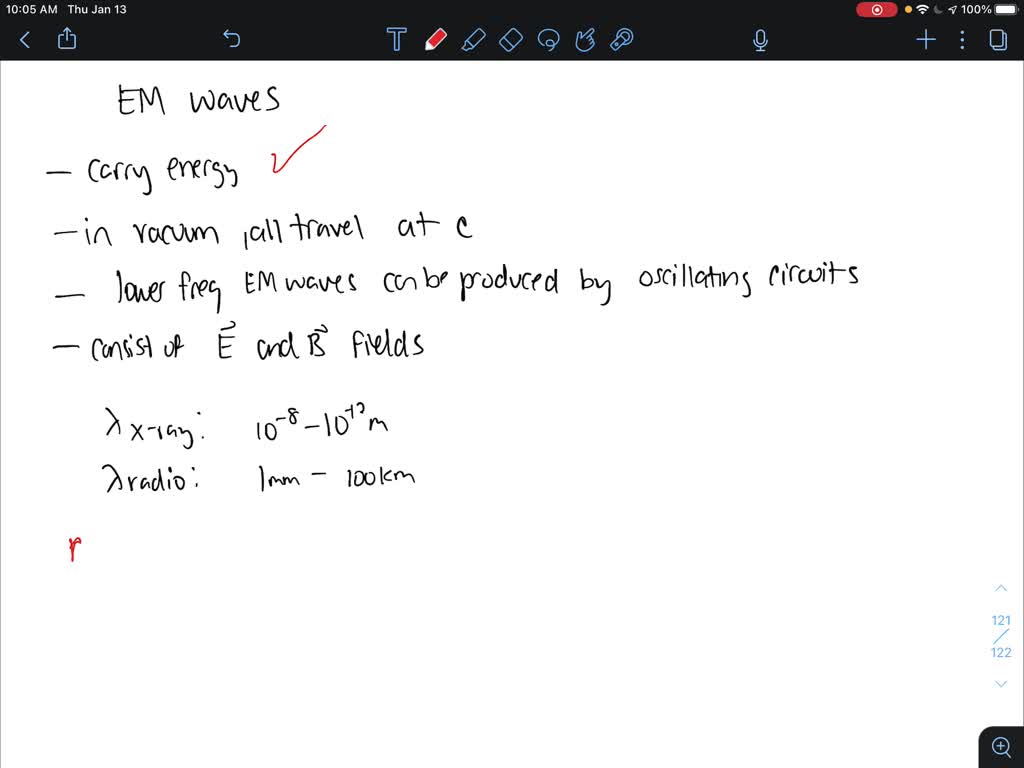 10:05 AM Thu Jan 13
100%
EM waves
– carry energy ✓
– in vacuum, all travel at c
– lower freq EM waves can be produced by oscillating circuits
– consist of E⃗ and B⃗ fields
λ x-ray: 10⁻⁸ – 10⁻¹² m
λ radio: 1mm – 100km
r
121
/
122